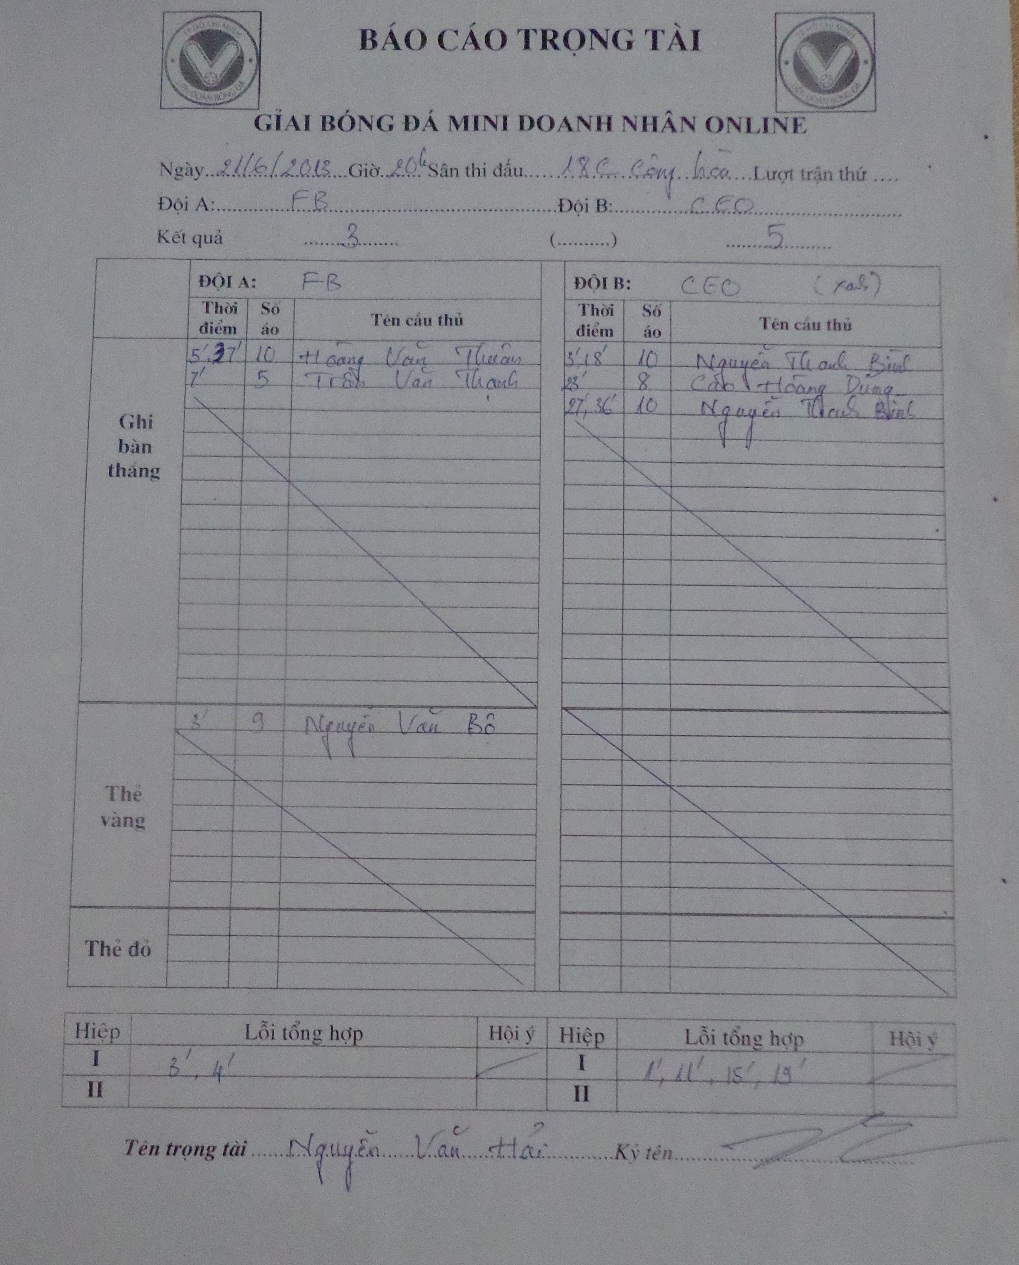 BÁO CÁO TRỌNG TÀI
GỈAI BÓNG ĐÁ MINI DOANH NHÂN ONLINE
Ngày...21/6/2013...Giờ..20h Sân thi đấu......18C Cộng hòa....Lượt trận thứ ....
Đội A:....FB....Đội B:....CEO....
Kết quả ....3.... (..........) ....5....
ĐỘI A: FB ĐỘI B: CEO (xanh)
Thời điểm Số áo Tên cầu thủ Thời điểm Số áo Tên cầu thủ
Ghi bàn thắng
5', 37' 10 Hoàng Văn Thuân 3', 18' 10 Nguyễn Thanh Bình
7' 5 Trần Văn Thạnh 23' 8 Cao Hoàng Dũng
27', 36' 10 Nguyễn Thanh Bình
Thẻ vàng
3' 9 Nguyễn Văn Bô
Thẻ đỏ
Hiệp Lỗi tổng hợp Hội ý Hiệp Lỗi tổng hợp Hội ý
I 3', 4' I 1', 11', 15', 19'
II II
Tên trọng tài ....Nguyễn Văn Hải.... Ký tên....